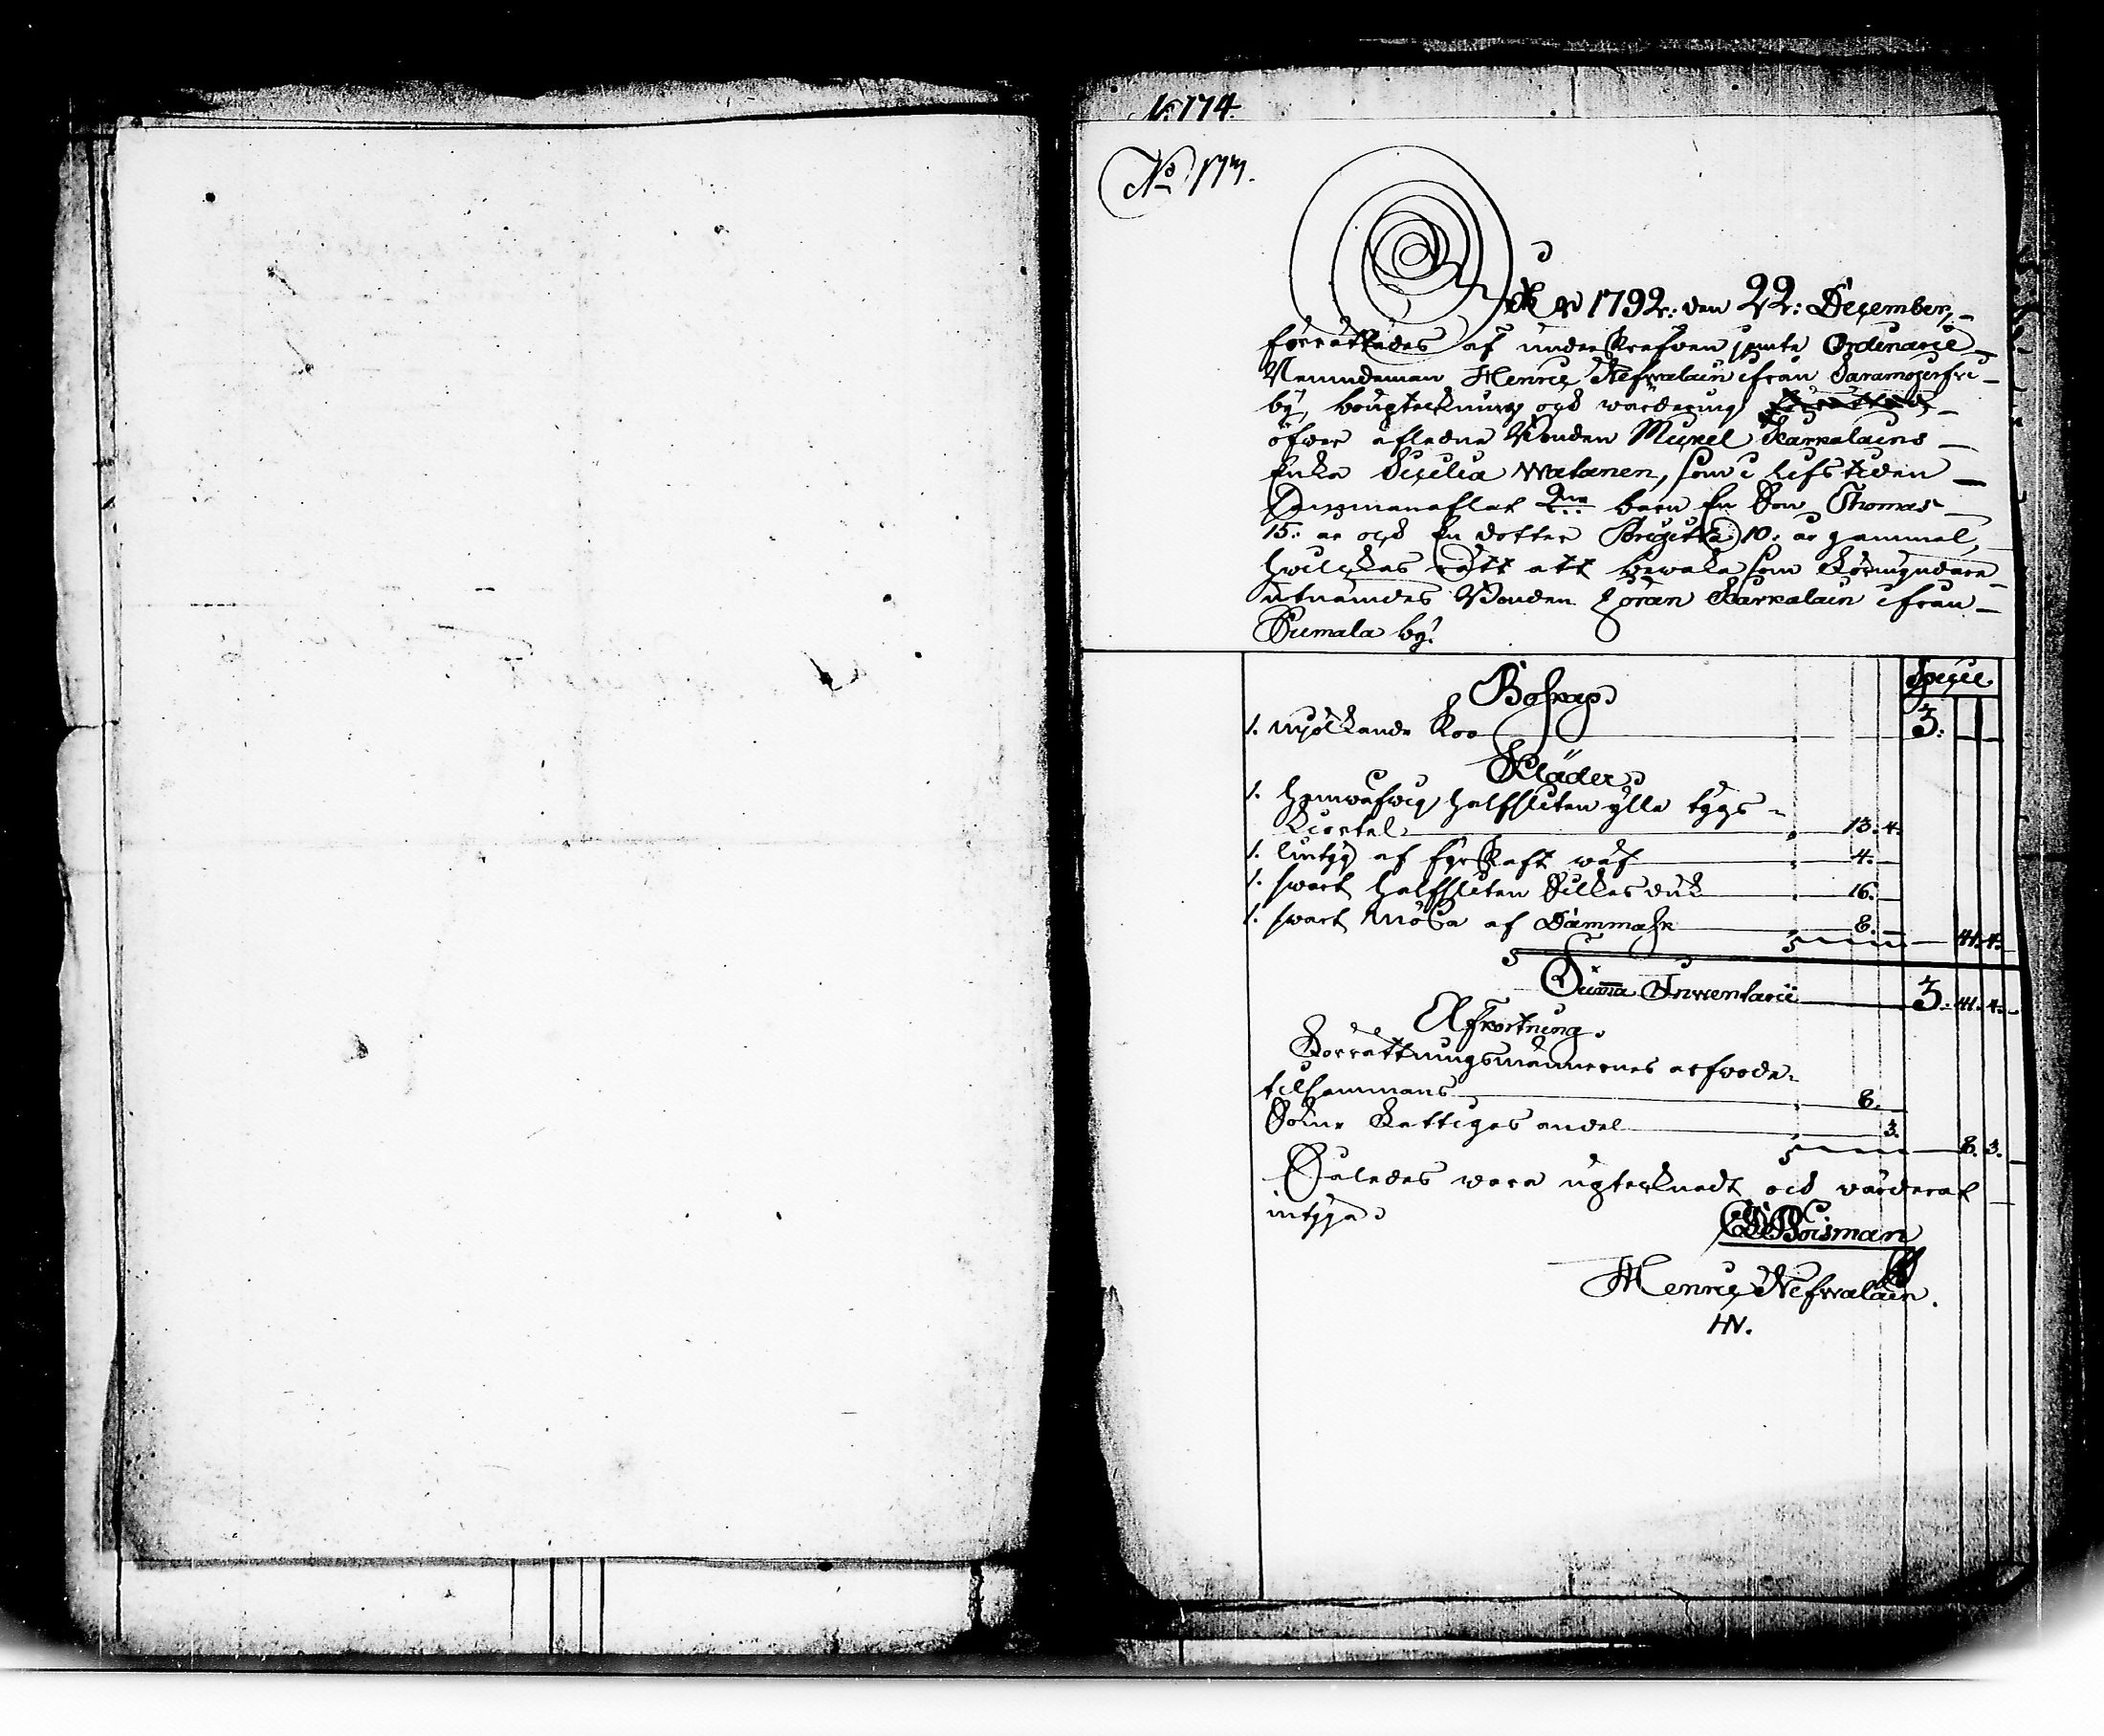 N:174.
No 173.
Åhr 1792: den 22: December,
förrättades af underskrefven jemte Ordinarie
Nämndeman Henric Nefwalain ifrån Saramojerfvi
by, bougteckning och wärdering
öfver afledne Bonden Michel Karkalains
Enka Cicilia Watanen, som i lifstiden
Sammanaflat 2ne barn En Son Thomas
15: år och En dotter Brigitta 10: år gammal,
hvilckas rätt att bewaka som Förmyndare
utnämdes Bonden Göran Karkalain ifrån
Sumala by.
Specie
Boskap
1. mjölkande Koo 3.
Kläder
1. hemväfvig halfsliten ylle tygs
Kiortel 13. 4.
1. lintyg af fyrskaft wäf 4.
1. swart halfsliten Silkes duk 16.
1. swart Mössa af Dammask 8. 41. 4.
Summa Inwentarii 3. 41. 4.
Afkortning.
Förrättningsmännernes arfwode
tilsammans 8.
Sokne Fattiges andel 3. 8. 3.
Således wara ugtecknadt och värderat
intyga
Boisman
Henric Nefwalain.
HN.